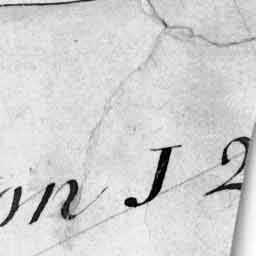 on J 2